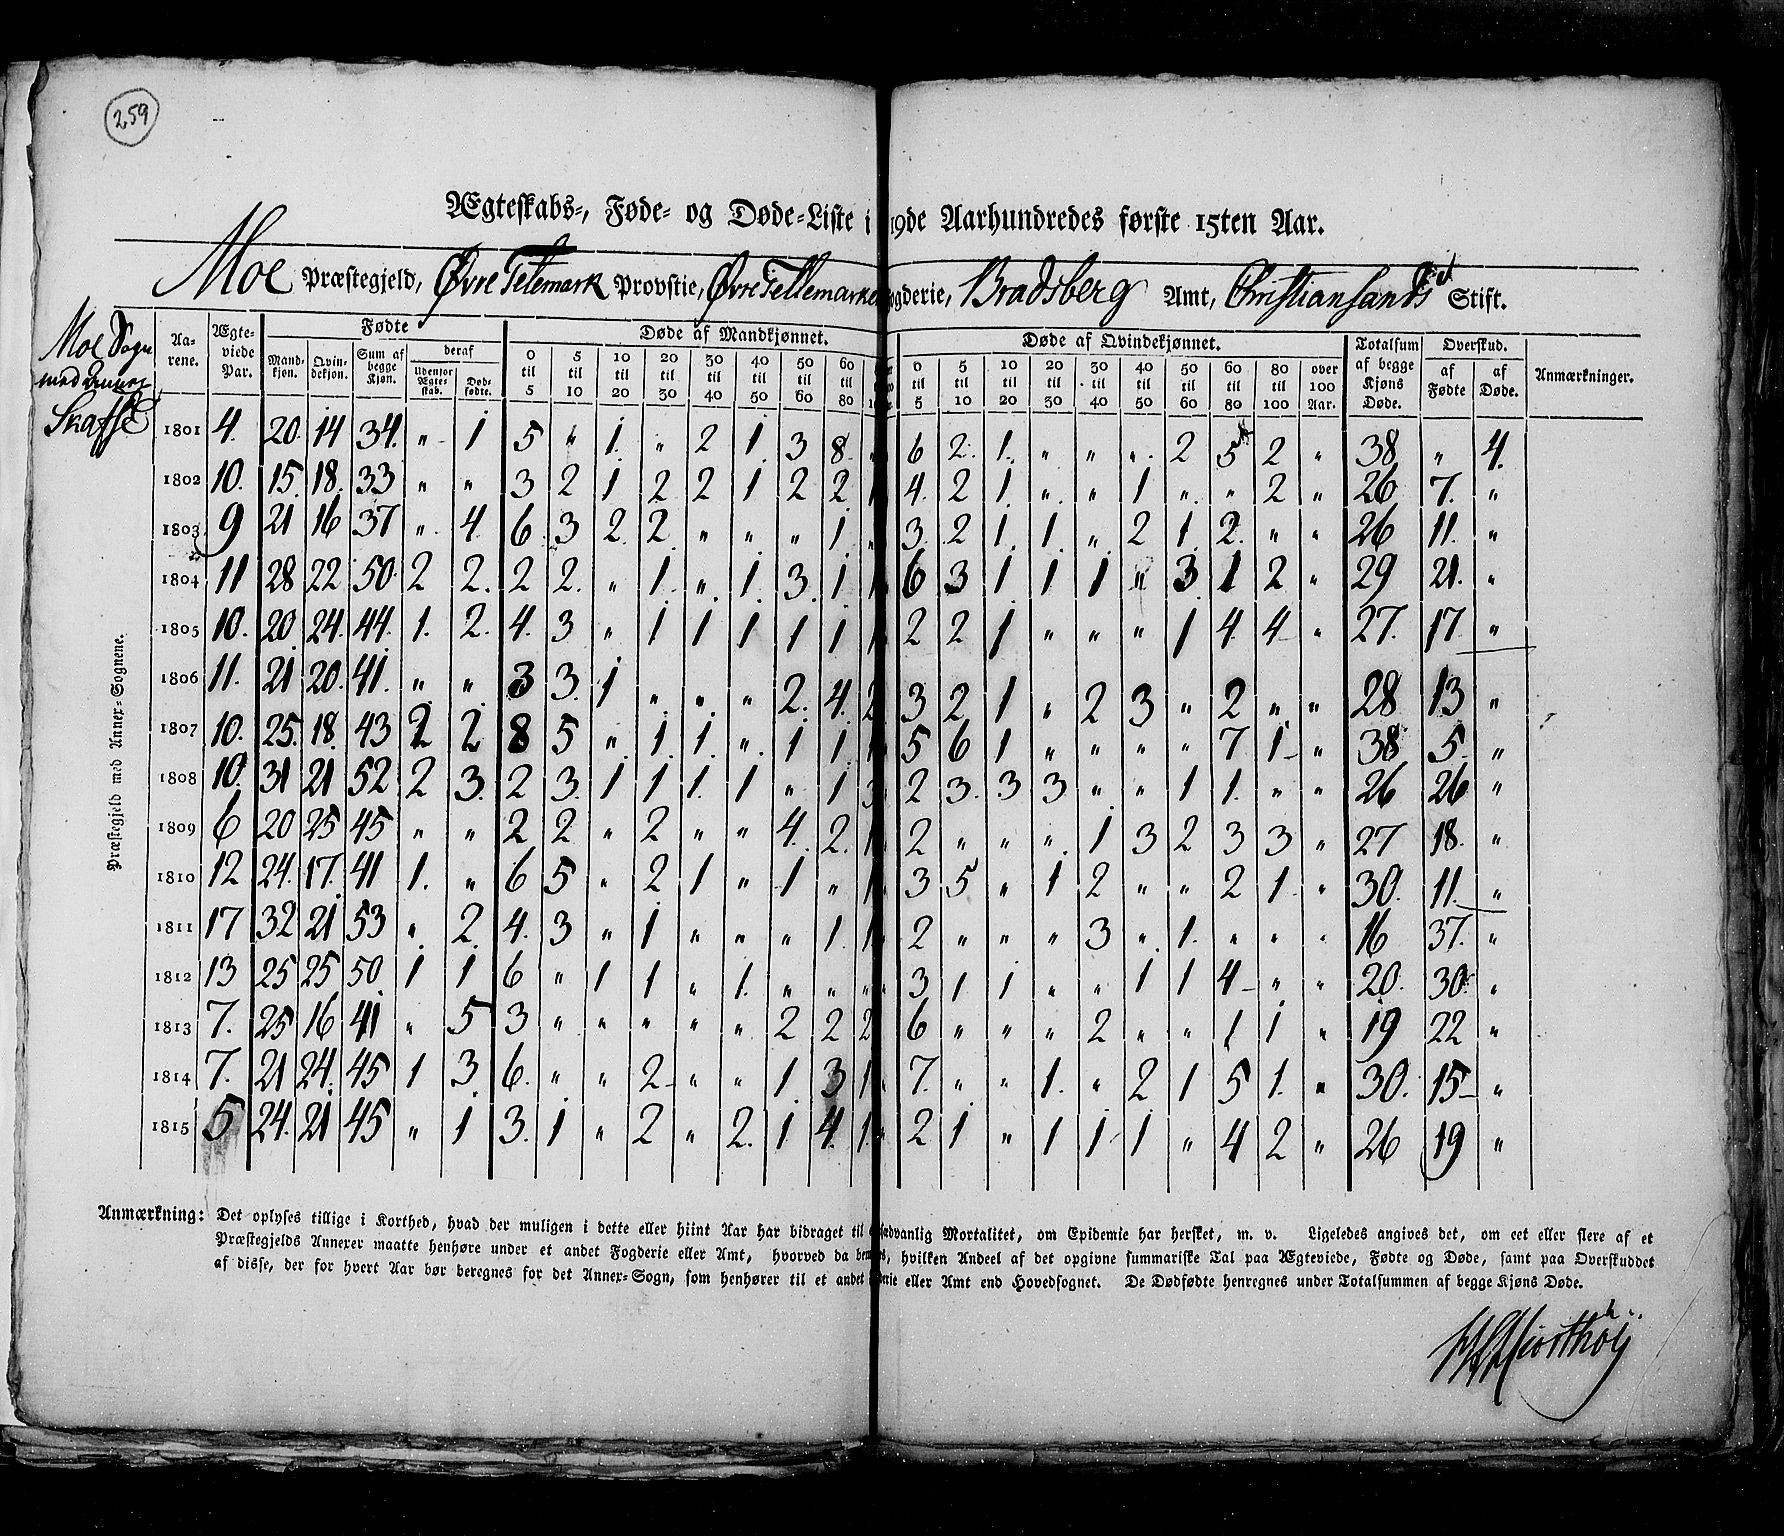 259
Ægteskabs-, Føde- og Døde-Liste i 19de Aarhundredes første 15ten Aar.
Moe Præstegjeld, Øvre Telemark Provstie, Øvre Tellemarke ogderie, Bradsberg Amt, Christiansands Stift.
Moe Sogn
med
Skafse
Præstegjeld med Annex-Sognene.
Aa-rene. Ægte-viede Par. Fødte Døde af Mandkjønnet. Døde af Qvindekjønnet. Totalsum af begge Kjøns Døde. Overskud. Anmærkninger.
Mand-kjøn. Qvin-dekjøn. Sum af begge Kjøn. deraf Udenfor Ægte-skab. Død-fødte. 0 til 5 5 til 10 10 til 20 20 til 30 30 til 40 40 til 50 50 til 60 60 til 80 0 til 5 5 til 10 10 til 20 20 til 30 30 til 40 40 til 50 50 til 60 60 til 80 80 til 100 over 100 Aar. af Fødte af Døde.
1801 4. 20. 14 34. " 1 5 " 1. " 2 1. 3 8. " 6 2. 1. " " " 2 5 2 " 38 " 4.
1802 10. 15. 18. 33 " " 3 2 1 2 2 1 2 2 1 4. 2 1. " " 1 " " 2 " 26 7. "
1803 9 21 16 37 " 4. 6 3 2 2 " " " 1. " 3. 2 1. 1. " 2 1. 2. " " 26 11. "
1804 11 28 22 50 2 2. 2 2. " 1. " 1. 3. 1. 1 6 3 1 1 1 " 3. 1 2 " 29 21. "
1805 10. 20 24. 44. 1. 2. 4. 3 " 1 1 1 1 1 1 2 2 1 " " " 1 4 4 " 27. 17 "
1806 11. 21 20. 41. " " 3 3. 1 " " " 2. 4. 2 3 2 1 " 2 3 " 2 " " 28 13 "
1807 10. 25. 18. 43 2 2 8 5 " 1. 1. " 1 1. 1 5 6 1 " " " " 7 1 " 38 5. "
1808 10. 31 21 52 2 3. 2 3. 1 1 1. 1 " 1 3 2 3. 3 3 " " 1 1. " " 26 26 "
1809 6 20 25 45 " " 2 2 " 2 " " 4. 2. 1 2 " " " 1 3 2 3 3 " 27 18. "
1810 12 24. 17. 41 1. " 6 5 " 2 1 " 1 " 1 3 5 " 1 2 " " 2 1. " 30. 11. "
1811 17 32 21 53 " 2. 4. 3 " 1 " " " 1. 1 2 " " " 3 " 1. " " " 16 37. "
1812 13 25 25 50. 1 1 6 " 1 1 " 1. " " " 3 1 1 " " 1 1 4 " " 20. 30 "
1813 7. 25 16 41 " 5 3 " " " " " 2 2 2 6 " " " 2 " " 1 1 " 19 22 "
1814 7. 21 24. 45 1 3. 6. " " 2 " " 1. 3 1 7. " " 1. " 2 1 5 1. " 30. 15 "
1815 5 24. 21 45 " 1 3. 1 " 2 " 2. 1 4. 1 2 1 " 1 1 1 " 4 2 " 26 19 "
Anmærkning: Det oplyses tillige i Korthed, hvad der muligen i dette eller hiint Aar har bidraget til sædvanlig Mortalitet, om Epidemie har hersket, m. v. Ligeledes angives det, om eet eller flere af et
Præstegjelds Annexer maatte henhøre under et andet Fogderie eller Amt, hvorved da hvilken Andeel af det opgivne summariske Tal paa Ægteviede, Fødte og Døde, samt paa Overskuddet
af disse, der for hvert Aar bør beregnes for det Annex-Sogn, som henhører til et andet eller Amt end Hovedsognet. De Dødfødte henregnes under Totalsummen af begge Kjøns Døde.